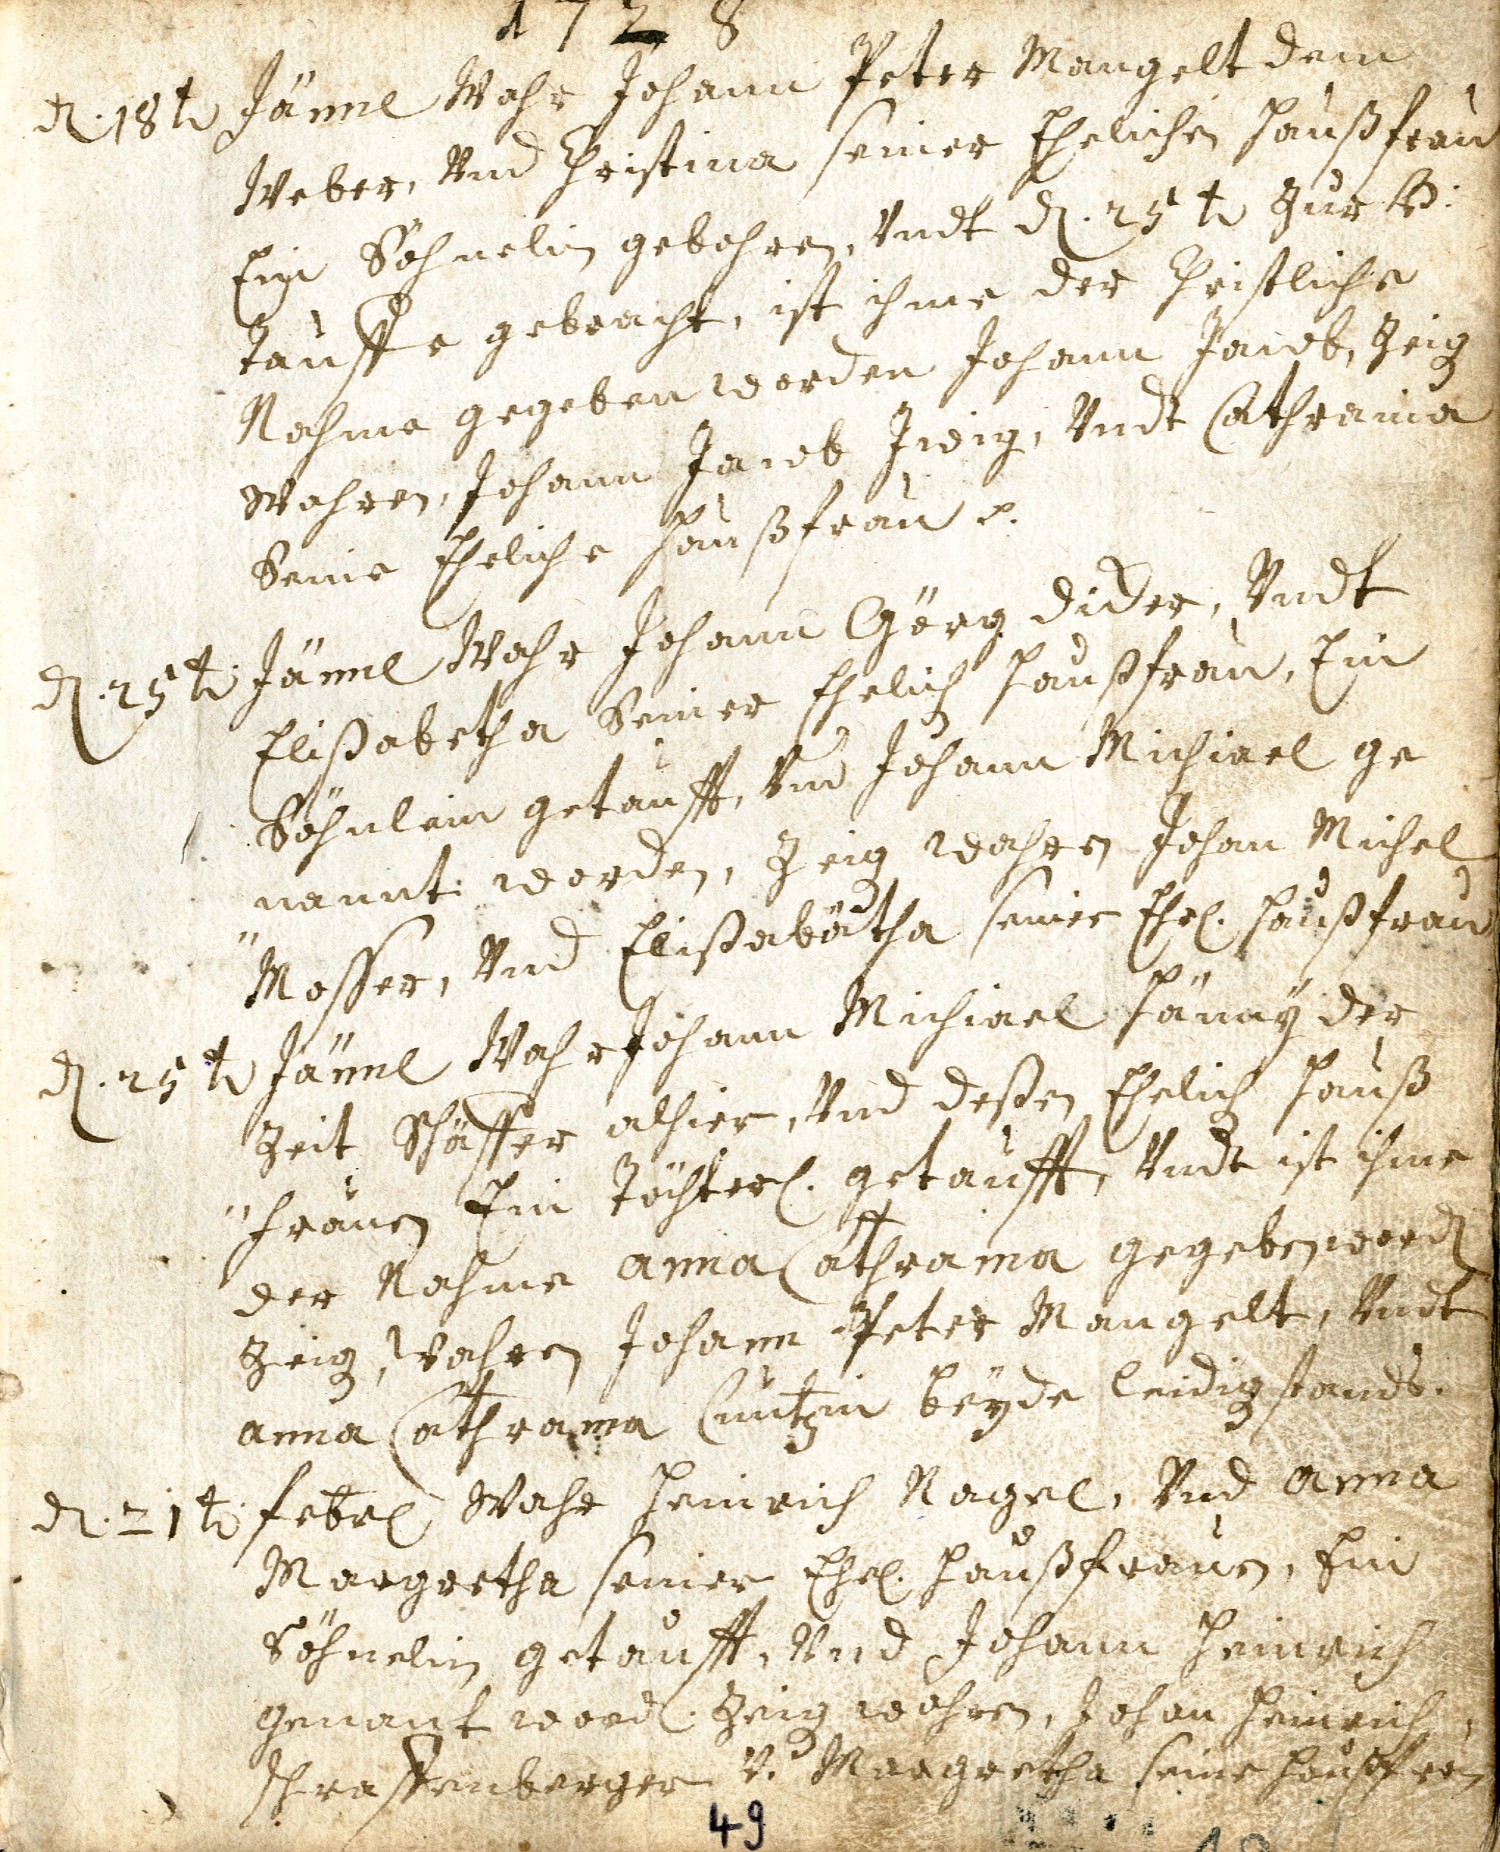 1728
d. 18t Jännl Wahr Johann Peter Mangelt dem
Weber, Und Christina seiner Ehelichen Haußfrau
Ein Söhnelin gebohren, Undt d. 25t Zur H:
Tauffe gebracht, ist ihme der Christliche
Nahme gegeben worden Johann Jacob, Zeig
Wahren, Johann Jacob Zweig, Undt Cathraina
Seine Eheliche Haußfrau
d. 25t Jännl Wahr Johann Görg Dider, Undt
Elißabetha Seiner Ehelich Haußfrau, Ein
Söhnlein getaufft, Und Johann Michael ge
nannt worden, Zeig wahren Johan Michel
"Mosser, Und Elißabätha seiner Ehel. Haußfrau
d. 25t Jännl Wahr Johann Michael Hänny der
Zeit Schäffer alhier, Und deßen Ehelich Hauß
"frauen Ein Töchterl. getaufft, Undt ist ihme
der Nahme anna Cathraina gegeben word
Zeig, Wahren Johann Peter Mangelt, Undt
anna Cathraina Cuntzin beyde leidig stands.
d. 21t febrl Wahr Heinrich Nagel, Und anna
Margretha seiner Ehel. Haußfrauen, Ein
Söhnelin getaufft, Und Johann Heinrich
genant word. Zeig wahren, Johan Heinrich
Schrassenberger U. Margretha seine Haußfrau
49